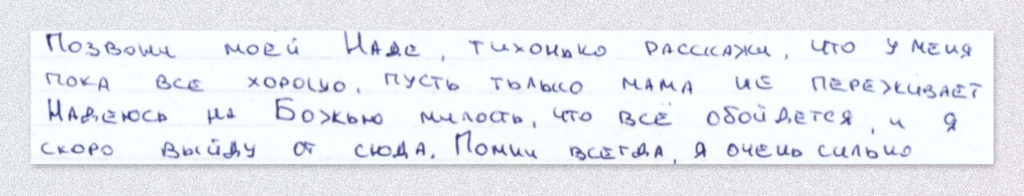 Позвони моей Наде, тихонько расскажи, что у меня
пока все хорошо, пусть только мама не переживает
Надеюсь на Божью милость, что всё обойдется, и я
скоро выйду от сюда. Помни всегда, я очень сильно